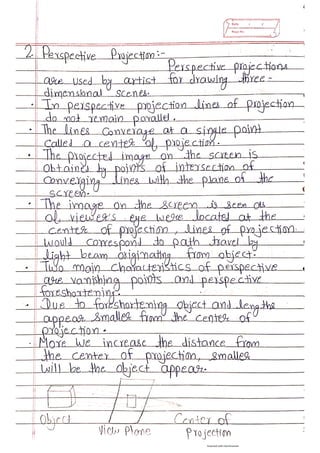 2. Perspective Projection:-
Perspective projections
are used by artist for drawing three-
dimensional scenes.
• In perspective projection lines of projection
do not remain parallel.
• The lines converge at a single point
called a center of projection.
• The projected image on the screen is
obtained by points of intersection of
converging lines with the plane of the
screen.
• The image on the screen is seen as
of viewer's eye were located at the
center of projection, lines of projection
would correspond to path travel by
light beam originating from object.
• Two main characteristics of perspective
are vanishing points and perspective
foreshortening.
• Due to foreshortening object and lengths
appear smaller from the center of
projection.
• More we increase the distance from
the center of projection, smaller
will be the object appear.
Object
View Plane
Center of
Projection